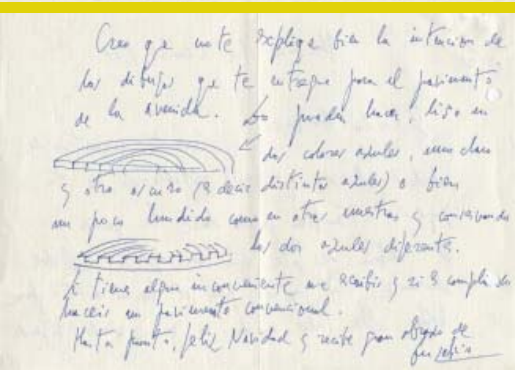 Creo que no te expliqe bien la intencion de
los dibujos qe te entregue para el pavimento
de la avenida. Lo puedes hacer, liso en
dos colores azules, uno claro
y otro oscuro (es decir distintos azules) o bien
un poco hundido como en otras muestras y conservando
los dos azules diferentes.
Si tienes algun inconveniente me escribes y si es complicado
haceis un pavimento convencional.
Hasta pronto, feliz Navidad y recibe gran abrazo de